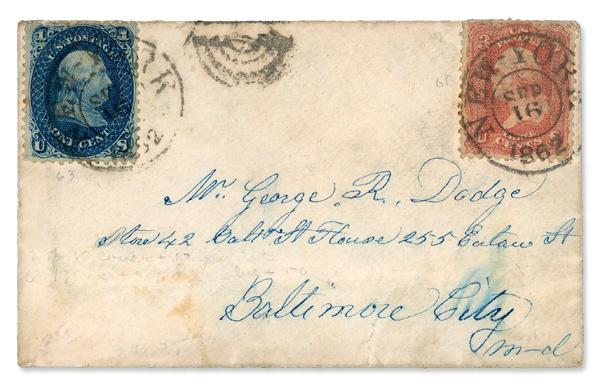 U.S. POSTAGE
ONE CENT
NEW-YORK
SEP
16
1862
63
Mr. George R. Dodge
Store 42 Balto St House 255 Eutaw St
Baltimore City
Md